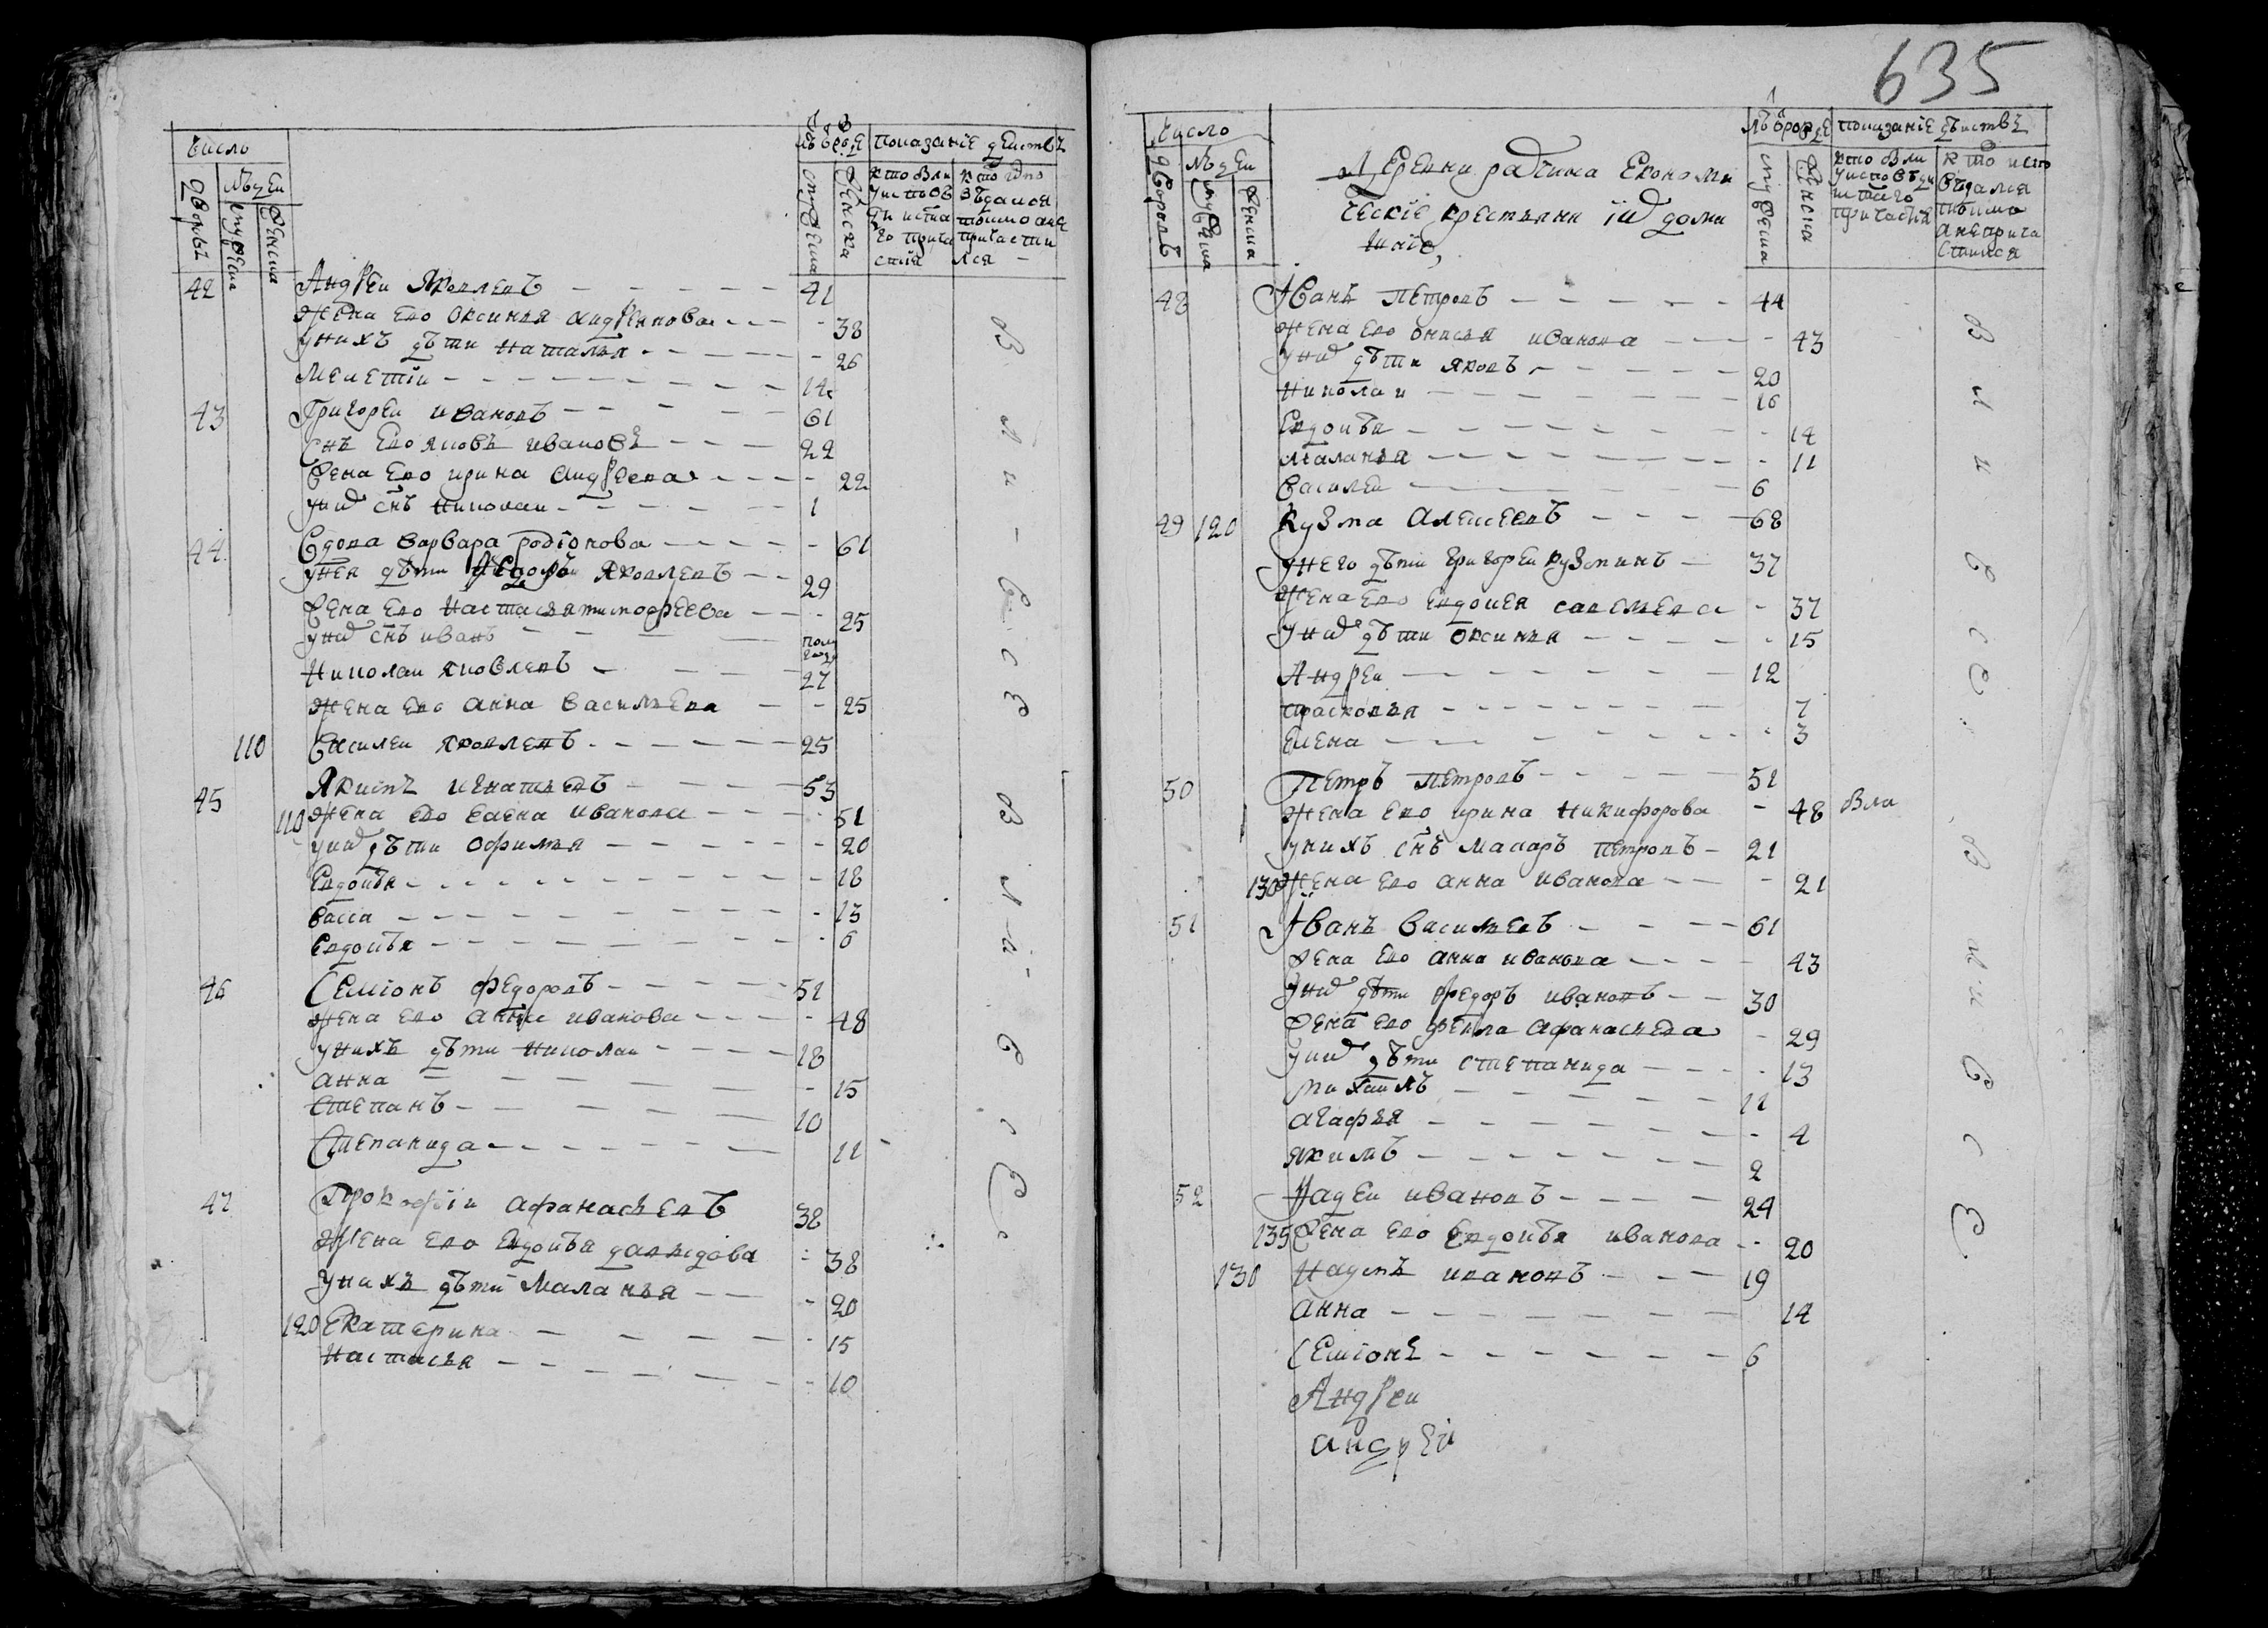 число
людеи
дворовъ
мужеска
женска
лѣ ѿ роже
мужеска
женска
показанїе действъ
кто были
у исповѣ
ди и свята
го прича
стїя
кто испо
вѣдался
токмо а не
причасти
лся
42 Андреи Яковлевъ 41
жена ево Оксинья Андреянова 38
у нихъ дѣти Наталья 26
Мелетїи 14
43 Григореи Ивановъ 61
снъ ево Яковъ Ивановъ 22
жена ево Ирина Андреева 22
у них снъ Николаи 1
44 вдова Варвара Родїонова 61
у нея дѣти Яковлевъ 29
жена ево Настасья Тимофеева 25
у них снъ Иванъ пол года
Николаи Яковлевъ 27
жена ево Анна Васильева 25
110 Василеи Яковлевъ 25
45 Якимъ Игнатьевъ 53
110 жена ево Елена Иванова 51
у них дѣти Офимья 20
Евдокѣя 18
Васса 13
Евдокѣя 6
46 Семїонъ Федоровъ 51
жена ево Анна Иванова 48
у нихъ дѣти Николаи 18
Анна 15
Степанъ 10
Степанида 11
47 Прокофїи Афанасьевъ 38
жена ево Евдокѣя Давыдова 38
у нихъ дѣти Маланья 20
120 Екатерина 15
Настасья 10
были все
были все
635
число
людеи
дворовъ
мужеска
женска
Деревни Ратчина Економи
ческїе крестьяни и их дома
шнїе
лѣ ѿ роже
мужеска
женска
показанїе дѣиствъ
кто были
у исповѣди
и стаго
причастїя
кто испо
вѣдался
токмо
а не прича
стился
48 Иванъ Петровъ 44
жена ево Онисья Иванова 43
у них дѣти Яковъ 20
Николаи 16
Евдокѣя 14
Маланья 11
Василеи 6
49 120 Кузма Алексеевъ 68
у него дѣти Григореи Кузминъ 37
жена ево Евдокея Савельева 37
у них дѣти Оксинья 15
Андреи 12
Прасковья 7
Елена 3
50 Петръ Петровъ 51
жена ево Ирина Никифорова 48 были
у нихъ снъ Макаръ Петровъ 21
130 жена ево Анна Иванова 21
51 Иванъ Васильевъ 61
жена ево Анна Иванова 43
у них дѣти Федоръ Ивановъ 30
жена ево Фекла Афанасьева 29
у них дѣти Степанида 13
Михаилъ 11
Агафья 4
Якимъ 2
52 Фадеи Ивановъ 24
135 жена ево Евдокѣя Иванова 20
130 Наумъ Ивановъ 19
Анна 14
Семїонъ 6
Андреи
андреи
были все
были все